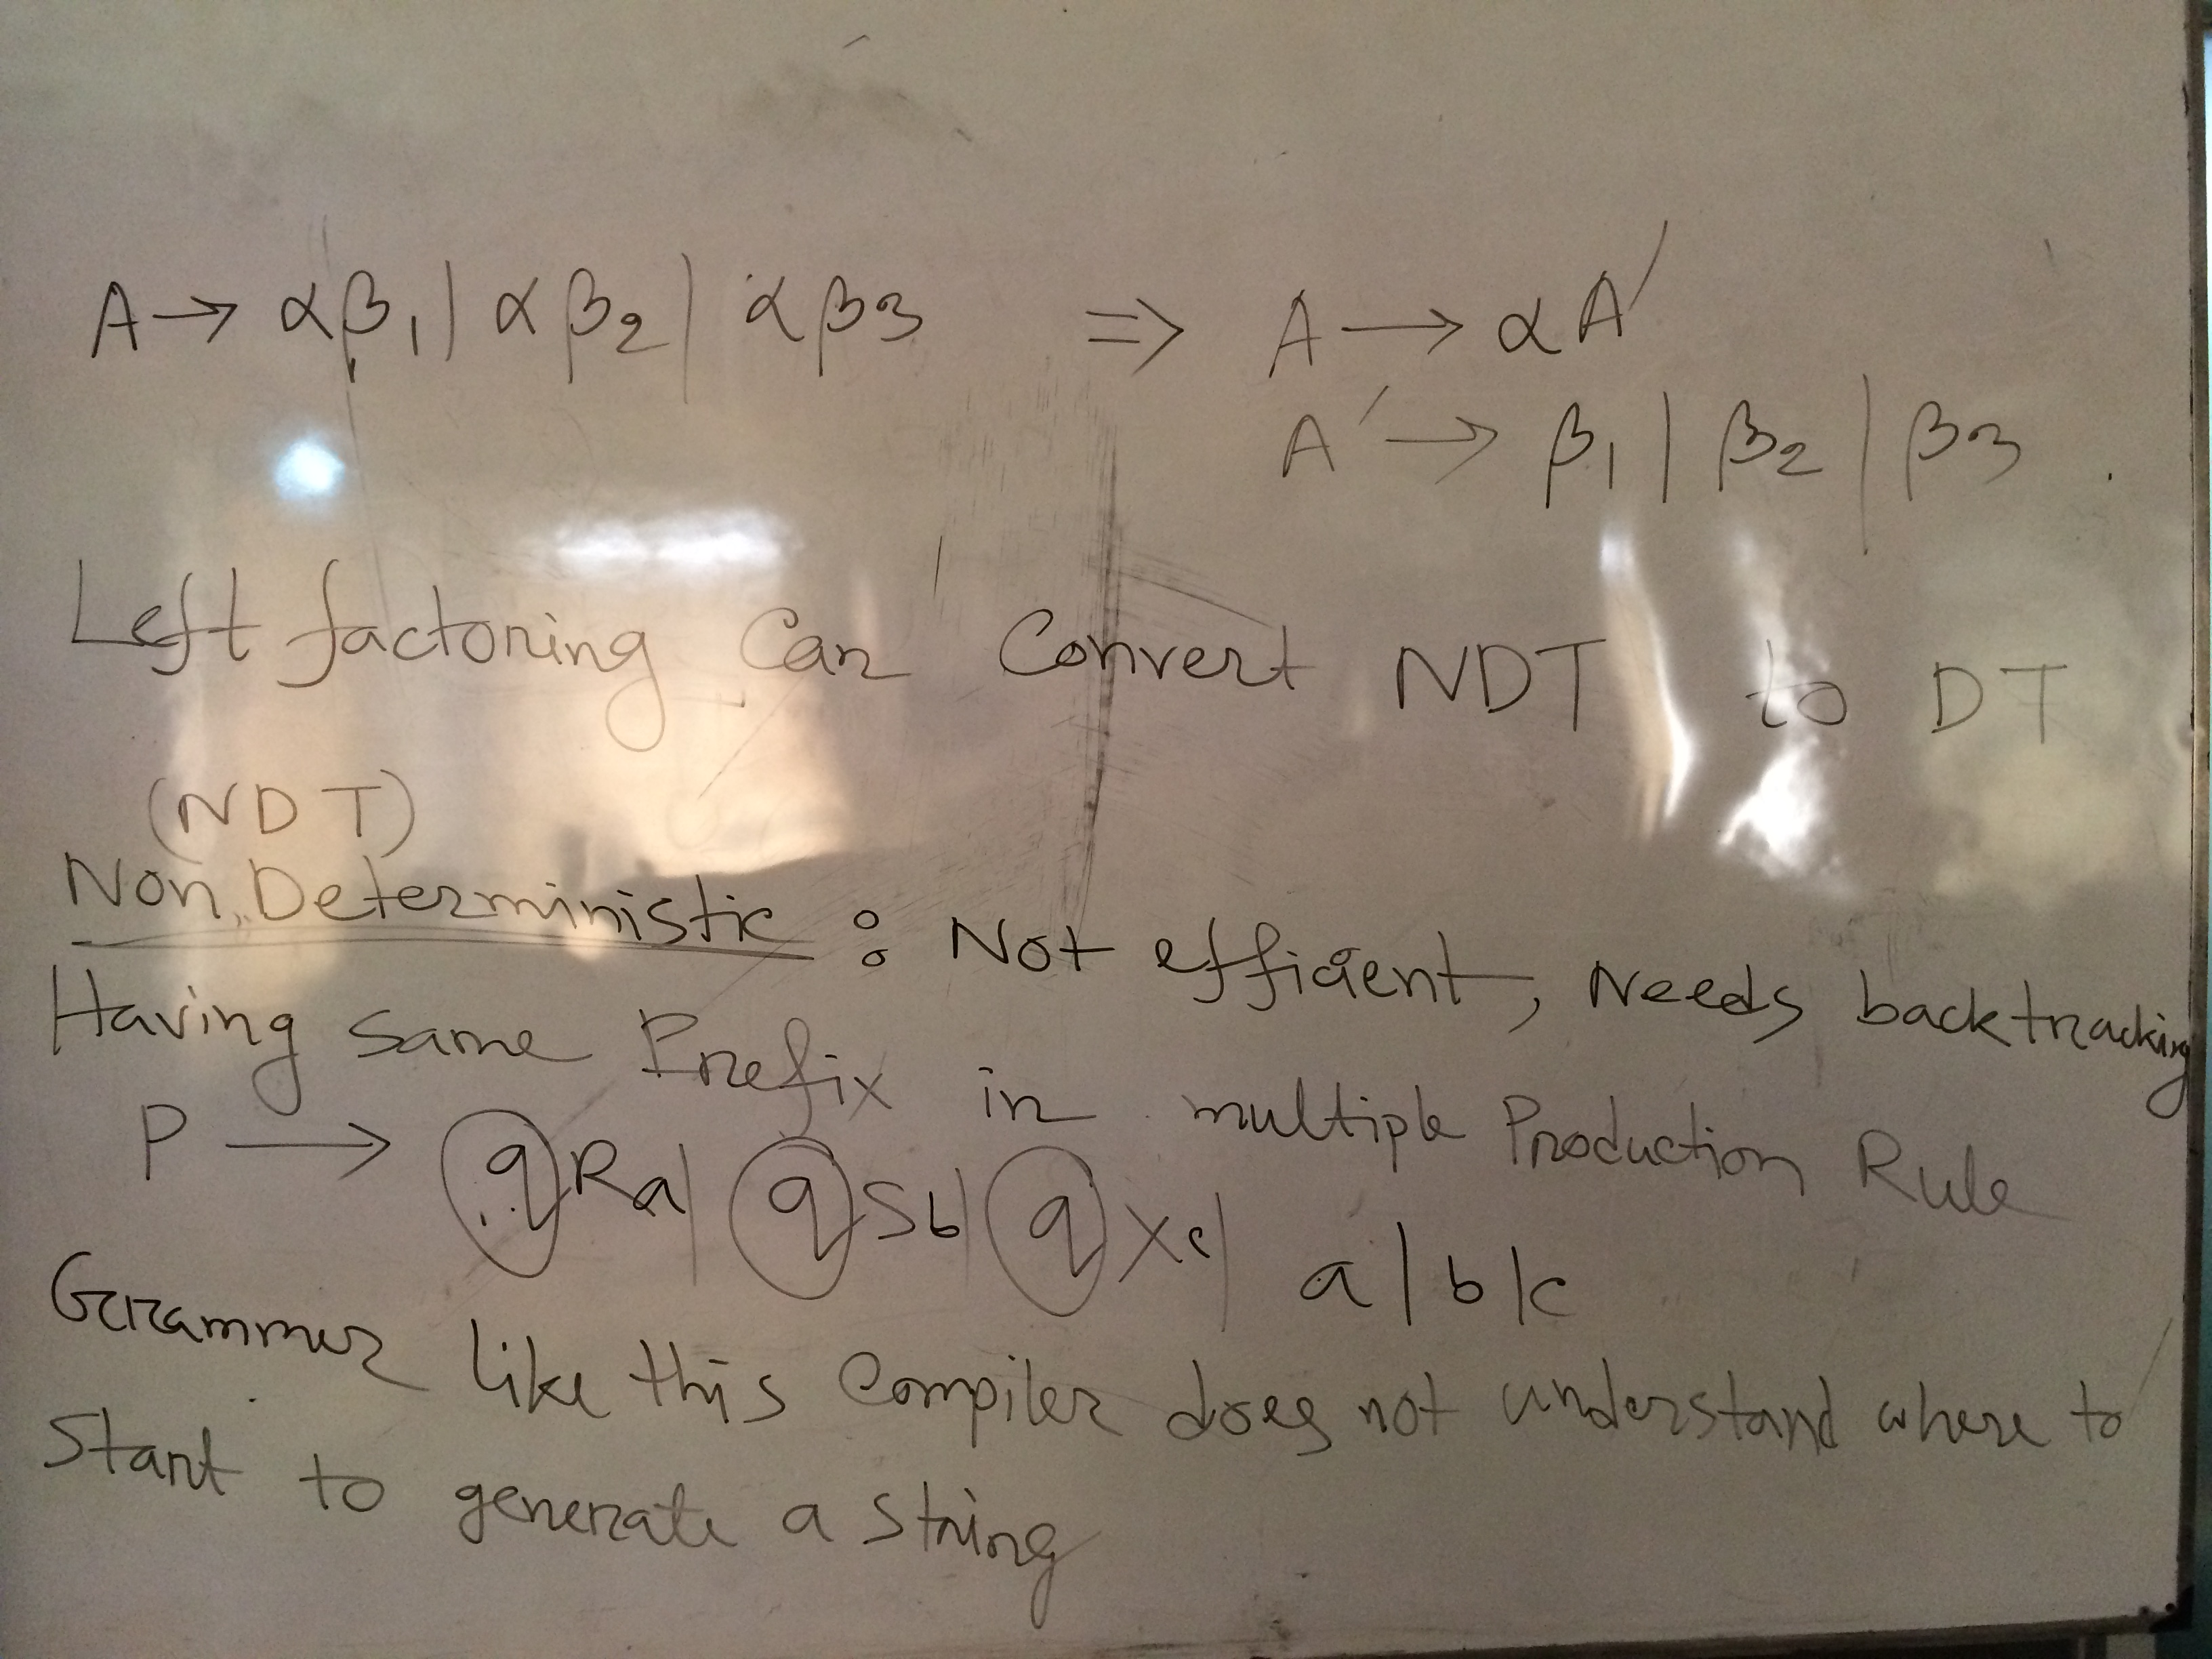 A → αβ₁ | αβ₂ | αβ3 ⇒ A → αA'
A' → β₁ | β₂ | β3
Left factoring Can Convert NDT to DT
(NDT)
Non Deterministic : Not efficient, Needs backtracking
Having same Prefix in multiple Production Rule
P → qRa | qSb | qXc | a | b | c
Grammer like this Compiler does not understand where to
Start to generate a string